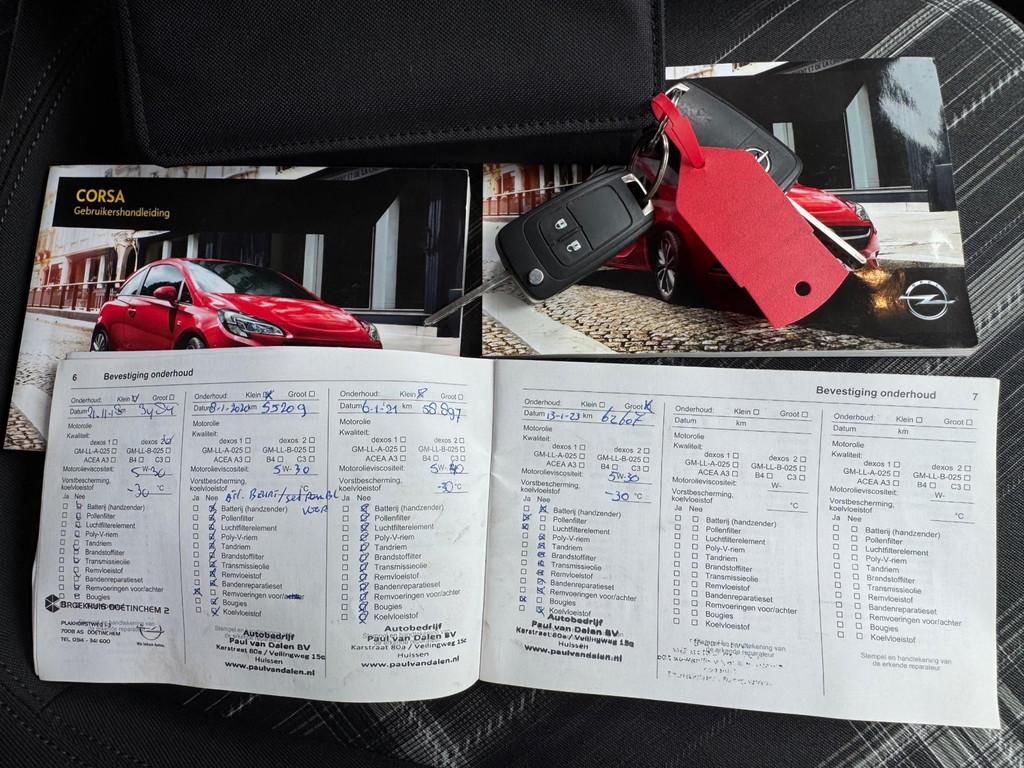 CORSA
Gebruikershandleiding
6 Bevestiging onderhoud
Onderhoud: Klein Groot
Datum 21-11-18 km
Motorolie
Kwaliteit:
dexos 1 dexos
GM-LL-A-025 GM-LL-B-025
ACEA A3 B4 C3
Motorolieviscositeit: 5 W-30
Vorstbescherming,
koelvloeistof -30 °C
Ja Nee
Batterij (handzender)
Pollenfilter
Luchtfilterelement
Poly-V-riem
Tandriem
Brandstoffilter
Transmissieolie
Remvloeistof
Bandenreparatieset
Remvoeringen voor/achter
DOETINCHEM 2
7008 AS DOETINCHEM
TEL. 0314 - 341 600
Onderhoud: Klein Groot
Datum 8-1-2020 km 55209
Motorolie
Kwaliteit:
dexos 1 dexos 2
GM-LL-A-025 GM-LL-B-025
ACEA A3 B4 C3
Motorolieviscositeit: 5W-30
Vorstbescherming,
koelvloeistof
Ja Nee
Batterij (handzender)
Pollenfilter
Luchtfilterelement
Poly-V-riem
Tandriem
Brandstoffilter
Transmissieolie
Remvloeistof
Bandenreparatieset
Remvoeringen voor/achter
Bougies
Koelvloeistof
Autobedrijf
Paul van Dalen BV
Karstraat 80a / Veilingweg 15c
Huissen
www.paulvandalen.nl
Onderhoud: Klein Groot
Datum 6-1-'21 km 58897
Motorolie
Kwaliteit:
dexos 1 dexos 2
GM-LL-A-025 GM-LL-B-025
ACEA A3 B4 C3
Motorolieviscositeit: 5W-
Vorstbescherming,
koelvloeistof -30 °C
Ja Nee
Batterij (handzender)
Pollenfilter
Luchtfilterelement
Poly-V-riem
Tandriem
Brandstoffilter
Transmissieolie
Remvloeistof
Bandenreparatieset
Remvoeringen voor/achter
Bougies
Koelvloeistof
Autobedrijf
Paul van Dalen BV
Karstraat 80a / Veilingweg 15c
Huissen
www.paulvandalen.nl
Bevestiging onderhoud 7
Onderhoud: Klein Groot
Datum 13-1-23 km 62607
Motorolie
Kwaliteit:
dexos 1 dexos 2
GM-LL-A-025 GM-LL-B-025
ACEA A3 B4 C3
Motorolieviscositeit: 5W-30
Vorstbescherming,
koelvloeistof -30 °C
Ja Nee
Batterij (handzender)
Pollenfilter
Luchtfilterelement
Poly-V-riem
Tandriem
Brandstoffilter
Transmissieolie
Remvloeistof
Bandenreparatieset
Remvoeringen voor/achter
Bougies
Koelvloeistof
Autobedrijf
Paul van Dalen BV
Karstraat 80a / Veilingweg 15c
Huissen
www.paulvandalen.nl
Onderhoud: Klein Groot
Datum km
Motorolie
Kwaliteit:
dexos 1 dexos 2
GM-LL-A-025 GM-LL-B-025
ACEA A3 B4 C3
Motorolieviscositeit: W-
Vorstbescherming,
koelvloeistof °C
Ja Nee
Batterij (handzender)
Pollenfilter
Luchtfilterelement
Poly-V-riem
Tandriem
Brandstoffilter
Transmissieolie
Remvloeistof
Bandenreparatieset
Remvoeringen voor/achter
Bougies
Koelvloeistof
Onderhoud: Klein Groot
Datum km
Motorolie
Kwaliteit:
dexos 1 dexos 2
GM-LL-A-025 GM-LL-B-025
ACEA A3 B4 C3
Motorolieviscositeit: W-
Vorstbescherming,
koelvloeistof °C
Ja Nee
Batterij (handzender)
Pollenfilter
Luchtfilterelement
Poly-V-riem
Tandriem
Brandstoffilter
Transmissieolie
Remvloeistof
Bandenreparatieset
Remvoeringen voor/achter
Bougies
Koelvloeistof
Stempel en handtekening van
de erkende reparateur